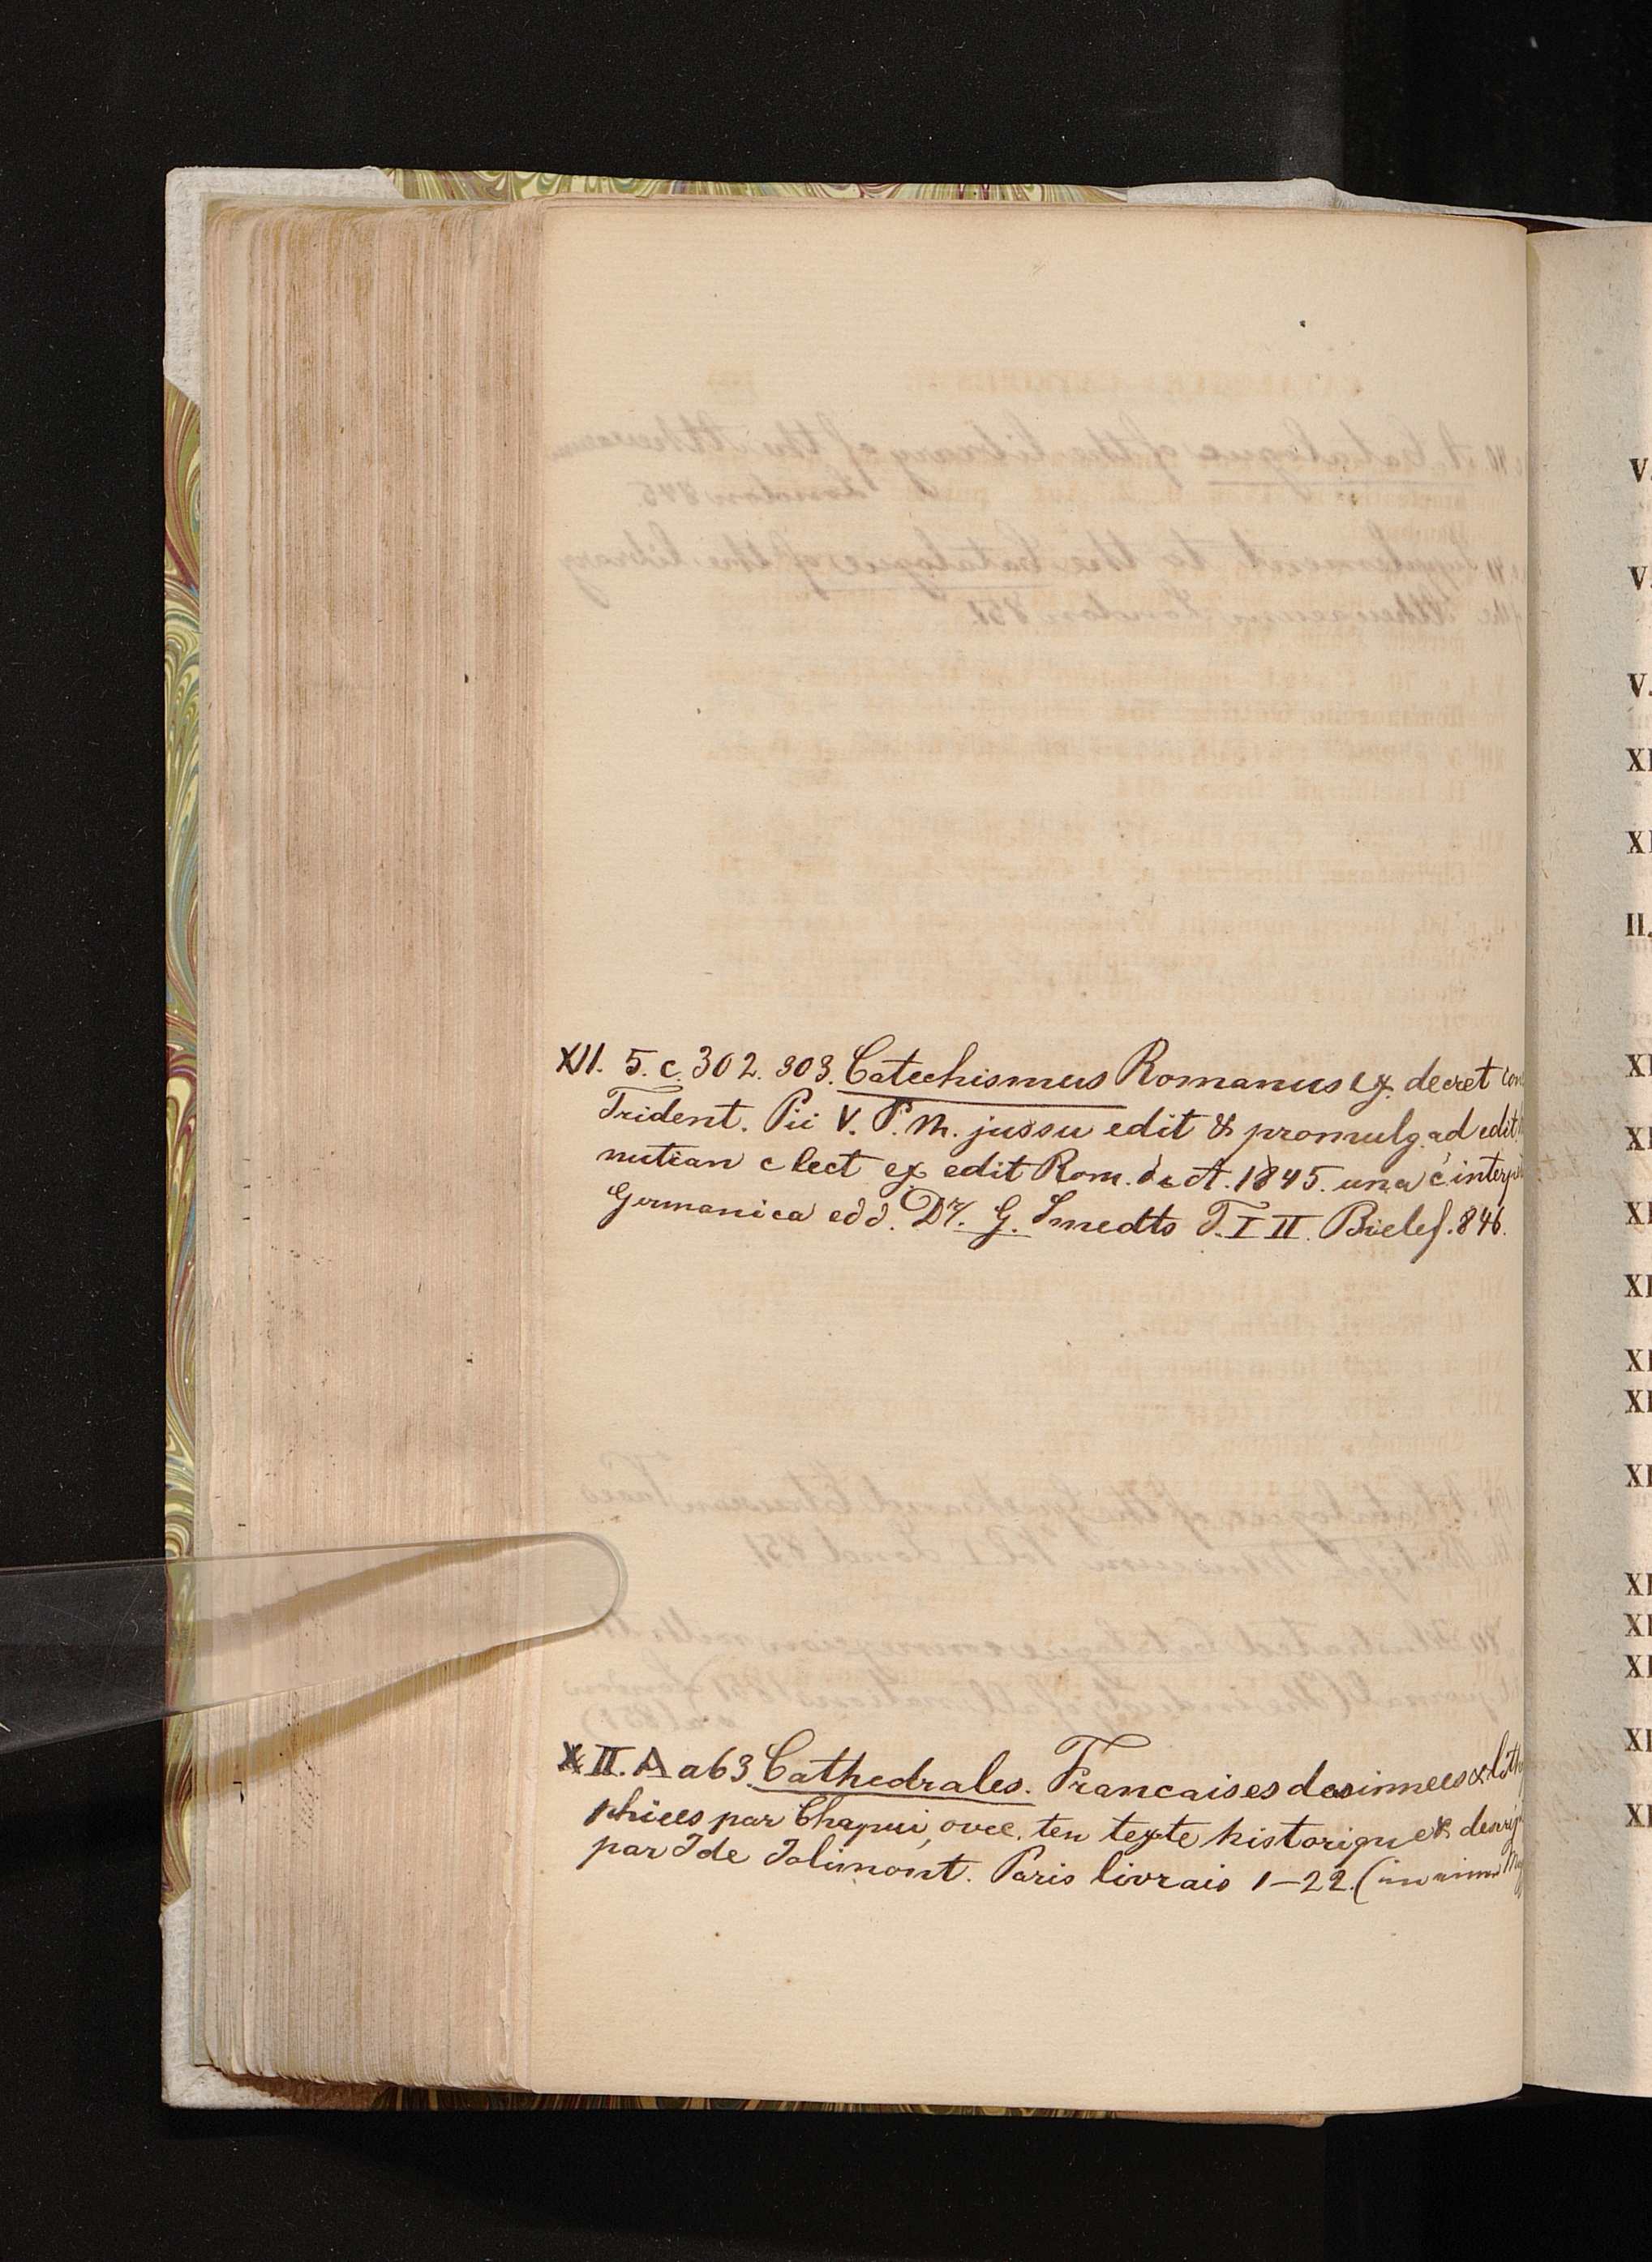 XII. 5. c. 302. 303. Catechismus Romanus ex decret con
Trident. Pii V. P. M. jussu edit & promulg. ad edit
nutian c lect ex edit Rom. de A. 1845. una c interp
Germanica edd. Dr. G. Smedts T. I II. Bielef. 846.
XII. A a 63. Cathedrales. Francaises dessinnees & lith
phiees par Chapui, avec. ten texte historique & descrip
par I de Jolimont. Paris livrais 1–22. (in
V.
V.
V.
XI
XI
II.
XI
XI
XI
XI
XI
XI
XI
XI
XI
XI
XI
XI